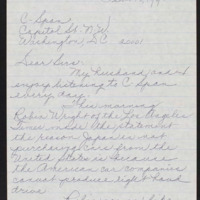 C-Span
Capitol St. N.W.
Washington, D.C.
Dear Sirs:
My husband and I
enjoy listening to C Span
every day.
This morning
Robin Wright of the Los Angeles
Times made the statement
the reason Japan does not
purchase cars from the
United States is because
the American car companies
do not produce right hand
drive